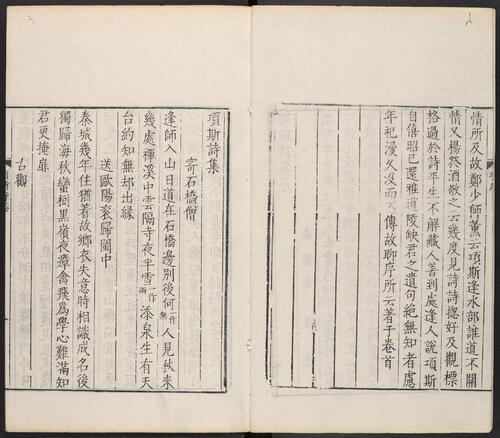 情所及故鄭少師薰云項斯逢水部誰道不關
情又楊祭酒敬之云幾度見詩詩揔好及觀標
格過於詩平生不解藏人善到處逢人說項斯
自僖昭已還雅道陵缺君之遺句絶無知者慮
年祀浸久沒而不傳故聊序所云著于卷首
項斯詩集
寄石橋僧
逢師入山日道在石橋邊別後何一作無人見秋來
幾處禪溪中雲隔寺夜半雪一作雨添泉生有天
台約知無却出縁
送歐陽衮歸閩中
秦城幾年住猶著故鄉衣失意時相識成名後
獨歸海秋蠻樹黒嶺夜瘴禽飛為學心難滿知
君更掩扉
古觀